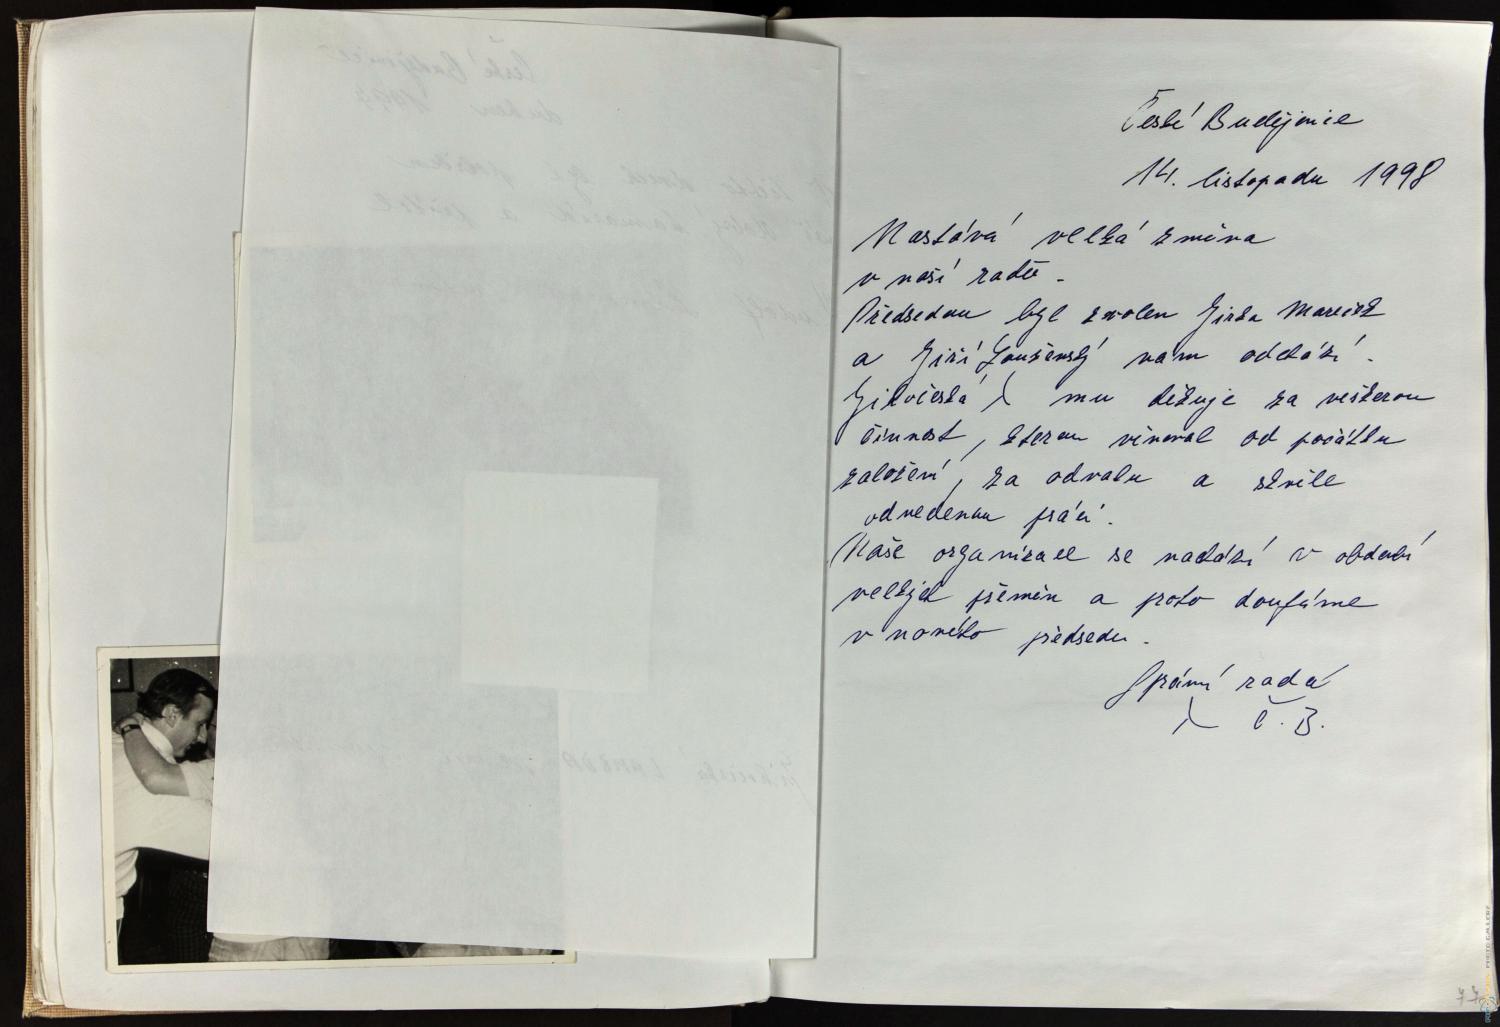 České Budějovice
14. listopadu 1998
Nastává velká změna
v naší radě.
Předsedou byl zvolen Jirka Mareček
a Jiří nám odchází.
Jihočeská λ mu děkuje za veškerou
činnost, kterou věnoval od počátku
založení, za odvahu a skvěle
odvedenou práci.
Naše organizace se nachází v období
velkých přeměn a proto doufáme
v nového předsedu.
Správní rada
λ Č.B.
77